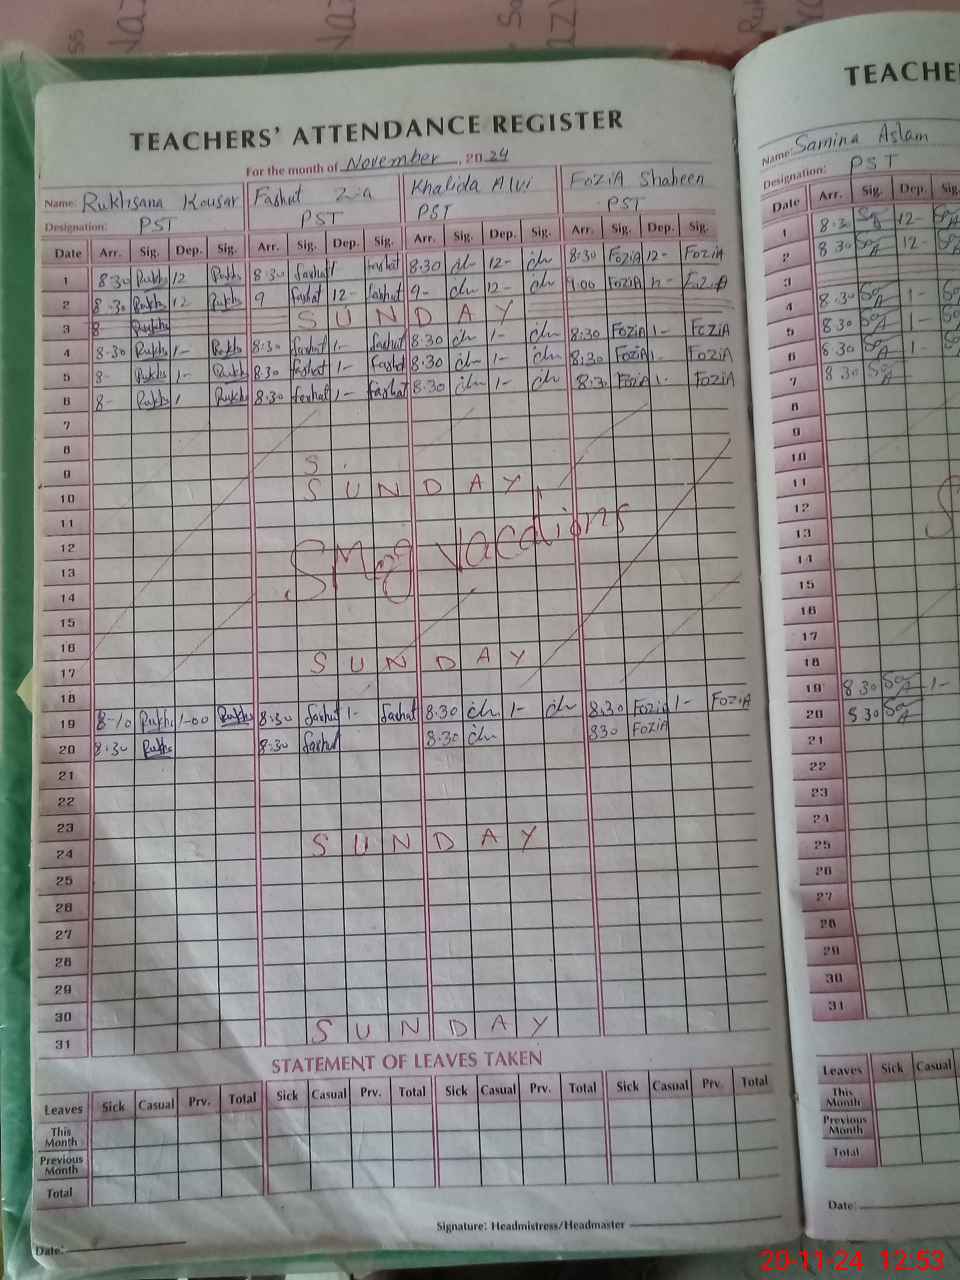 TEACHERS' ATTENDANCE REGISTER
For the month of November, 2024
Name: Rukhsana Kousar Fashut Zia Khalida Alvi FoziA Shaheen
Designation: PST PST PST PST
Date Arr. Sig. Dep. Sig. Arr. Sig. Dep. Sig. Arr. Sig. Dep. Sig. Arr. Sig. Dep. Sig.
1 8:30 Rukhs 12 Rukhs 8:30 fashut fashut 8:30 12- 8:30 FoziA 12- FoziA
2 8:30 Rukhs 12 Rukhs 9 fashut 12- fashut 9- 12- 9.00 FoziA FoziA
3 8 Rukhs SUNDAY
4 8-30 Rukhs 1- Rukhs 8:30 fashut 1- fashut 8:30 1- 8:30 FoziA 1- FoziA
5 8- Rukhs 1- Rukhs 8:30 fashut 1- fashut 8:30 1- 8:30 FoziA 1- FoziA
6 8- Rukhs 1 Rukhs 8:30 fashut 1- fashut 8:30 1- 8:30 FoziA 1- FoziA
7
8
9 S
10 SUNDAY
11
12 Smog vacations
13
14
15
16
17 SUNDAY
18
19 8-10 Rukhs 1-00 Rukhs 8:30 fashut 1- fashut 8:30 1- 8:30 FoziA 1- FoziA
20 8:30 Rukhs 8:30 fashut 8:30 830 FoziA
21
22
23
24 SUNDAY
25
26
27
28
29
30
31 SUNDAY
STATEMENT OF LEAVES TAKEN
Leaves Sick Casual Prv. Total Sick Casual Prv. Total Sick Casual Prv. Total Sick Casual Prv. Total
This Month
Previous Month
Total
Signature: Headmistress/Headmaster
Date:
TEACHE
Name: Samina Aslam
Designation: PST
Date Arr. Sig. Dep. Sig.
1 8:30 12-
2 8 30 12-
3
4 8-30 1-
5 8:30 1-
6 8:30 1-
7 8 30
8
9
10
11
12
13
14
15
16
17
18
19 8 30 1-
20 8 30
21
22
23
24
25
26
27
28
29
30
31
Leaves Sick Casual
This Month
Previous Month
Total
Date:
20-11-24 12:53